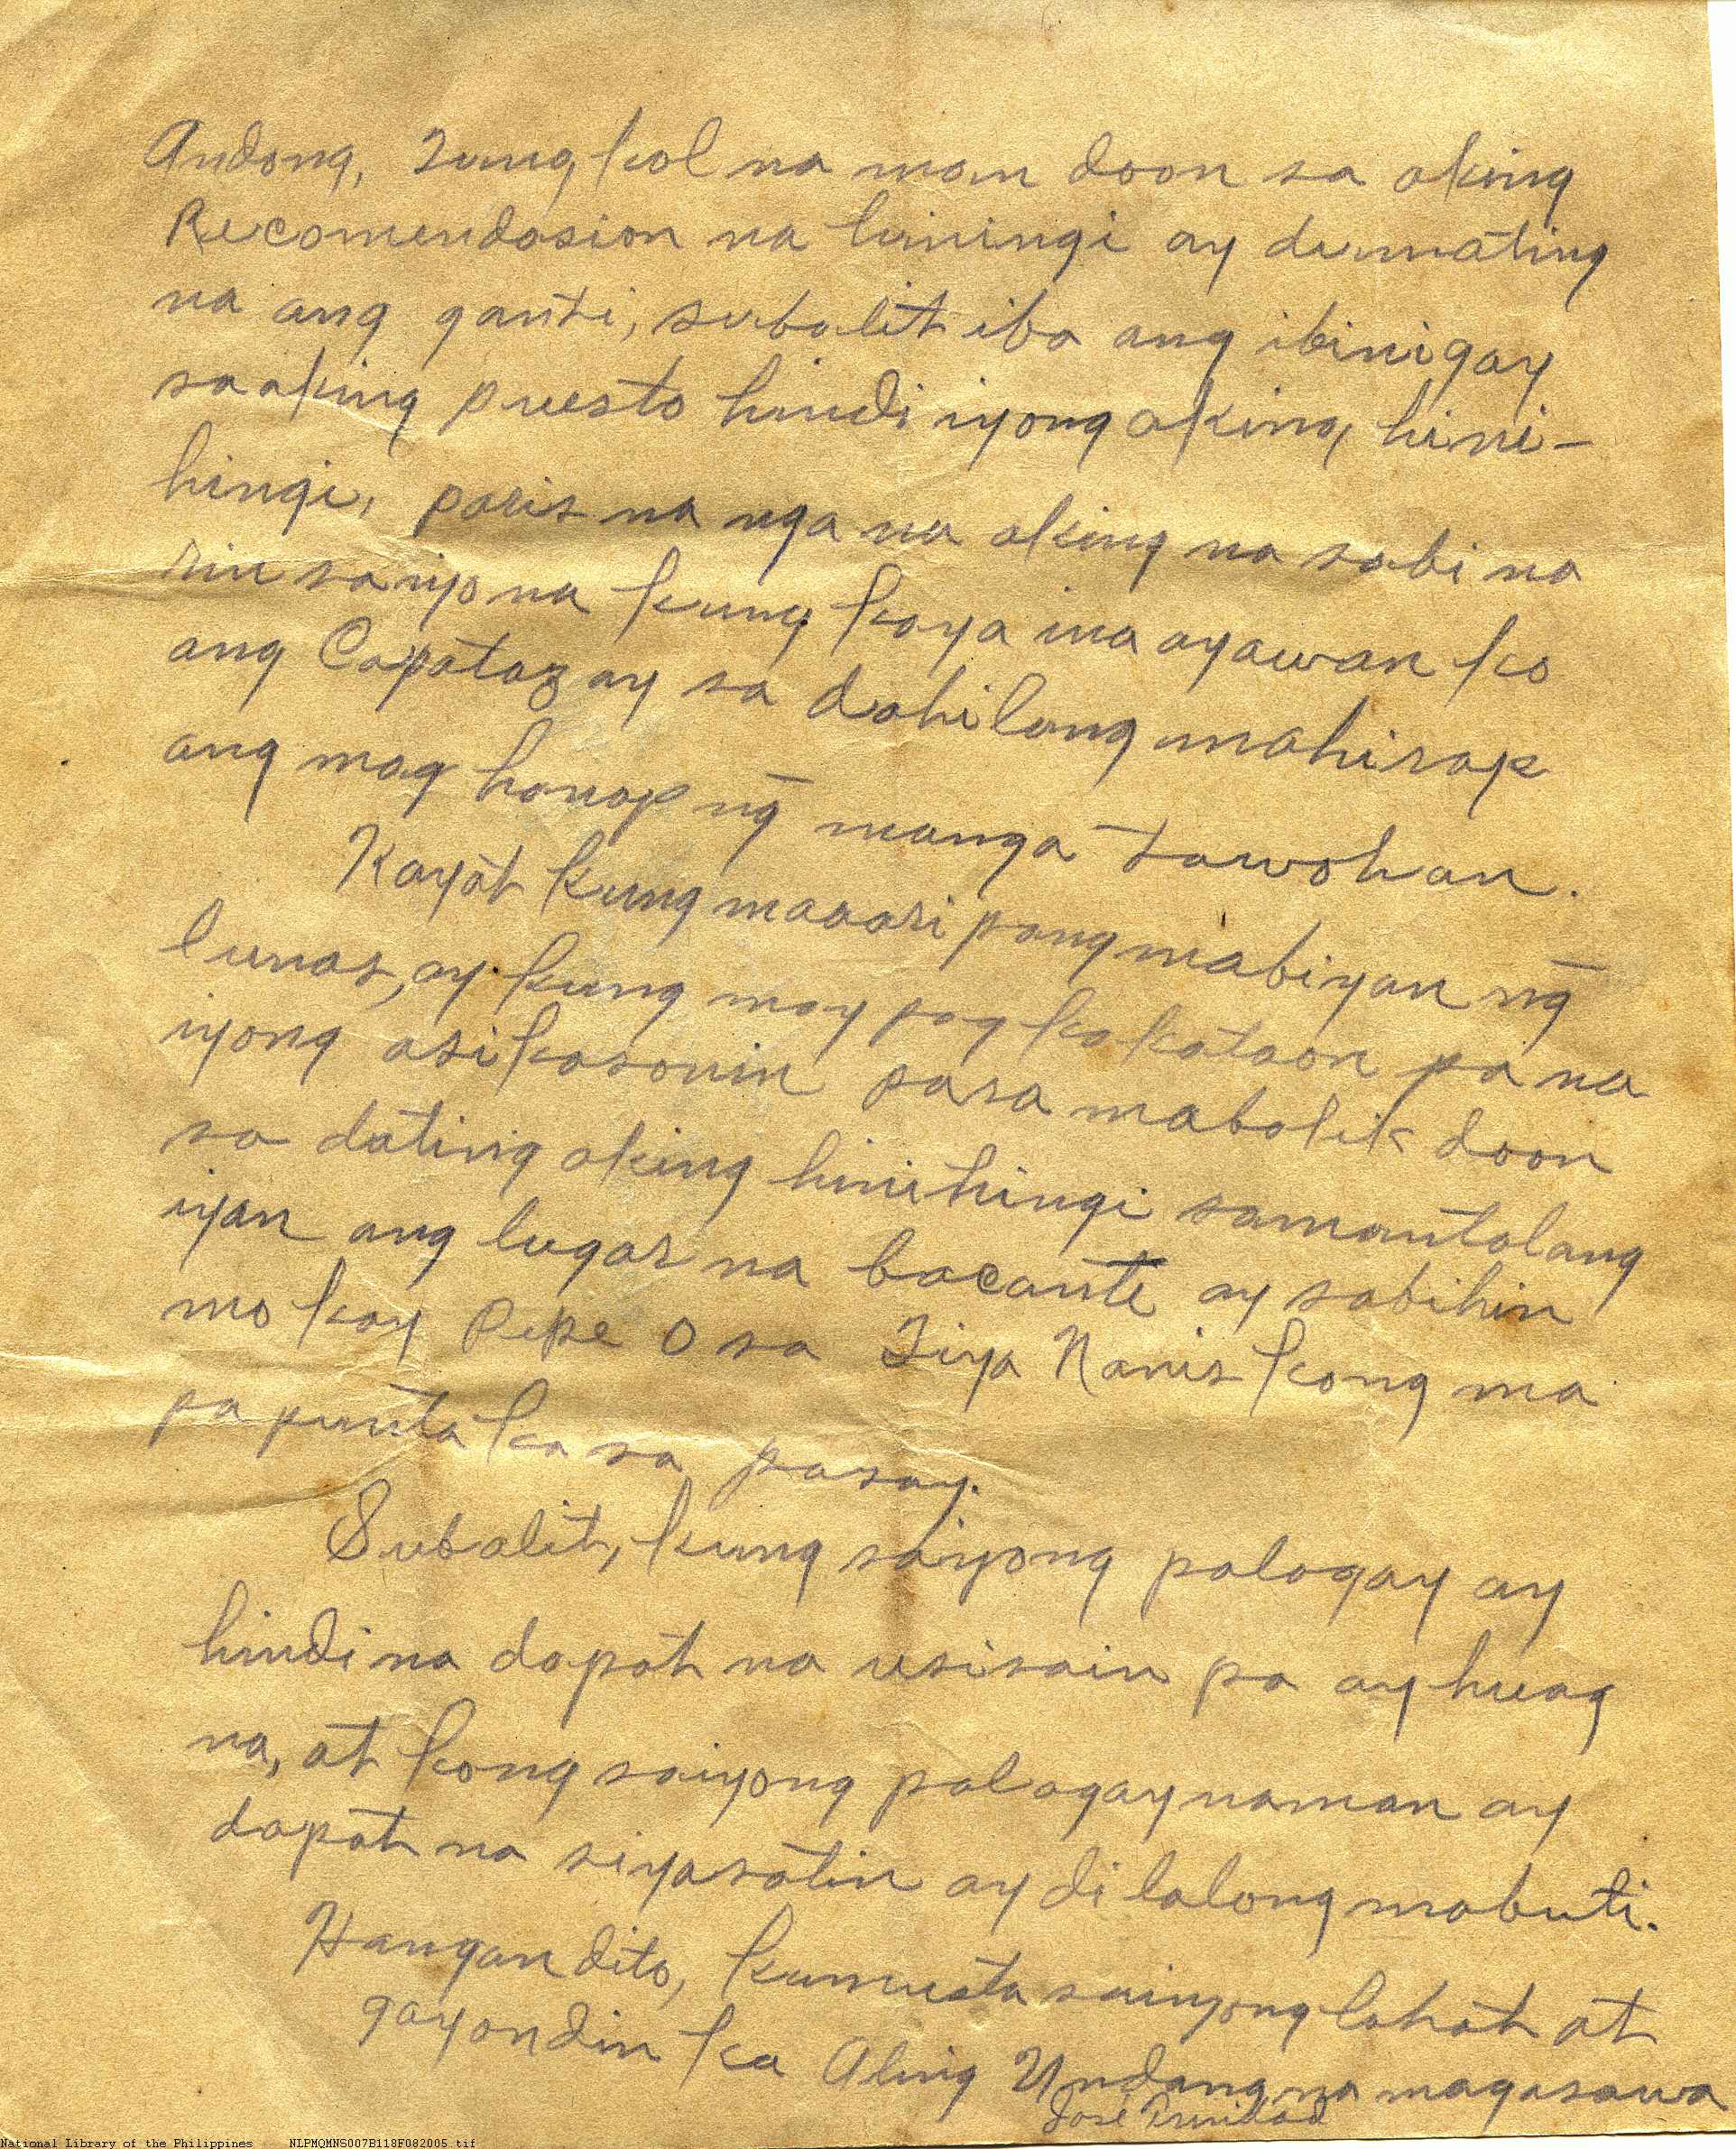 Andong, Tungkol na man doon sa aking
Recomendasion na hiningi ay dumating
na ang ganti, subalit iba ang ibinigay
saaking puesto hindi iyong aking hini-
hingi, paris na nga na aking na sabi na
rin saiyo na kung kaya ina ayawan ko
ang Capataz ay sa dahilang mahirap
ang mag hanap ng̃ manga tawohan.
Kayat kung maaari pang mabiyan ng̃
lunas, ay kung may pag kakataon pa na
iyong asikasohin para mabalik doon
sa dating aking hinihingi samantalang
iyan ang lugar na bacante ay sabihin
mo kay Pepe o sa Tiya Nanis kong ma
pa punta ka sa pasay.
Subalit, kung saiyong palagay ay
hindi na dapat na usisain pa ay huag
na, at kong saiyong palagay naman ay
dapat na siyasatin ay di lalong mabuti.
Hangan dito, kumusta sainyong lahat at
gayon din ka Aling Undang na magasawa
Jose Trinidad
National Library of the Philippines NLPMQMNS007B118F082005.tif